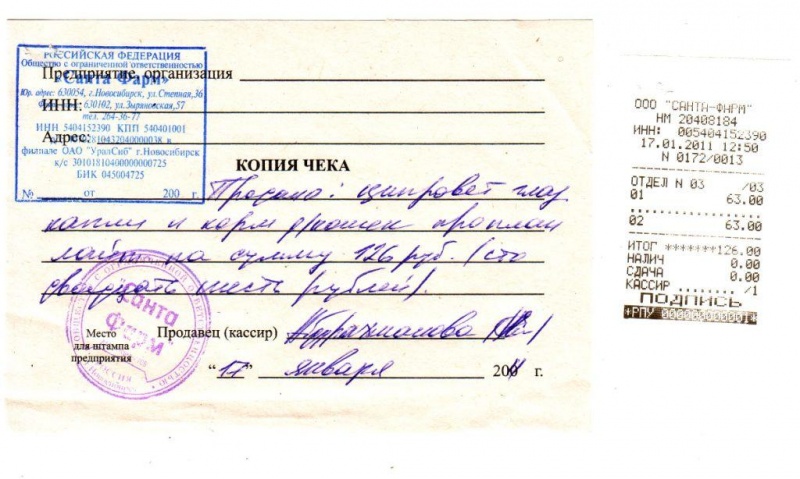 РОССИЙСКАЯ ФЕДЕРАЦИЯ
Общество с ограниченной ответственностью
«Санта Фарм»
Юр. адрес: 630054, г.Новосибирск, ул.Степная,36
630102, ул.Зыряновская,57
тел. 264-36-77
ИНН 5404152390 КПП 540401001
в
филиале ОАО "УралСиб" г.Новосибирск
к/с 30101810400000000725
БИК 045004725
Предприятие, организация
ИНН:
Адрес:
КОПИЯ ЧЕКА
№ от 200 г.
Продано: ципровет глаз
капли и корм д/кошек проплан
лайт на сумму 126 руб. (сто
двадцать шесть рублей).
Санта
Фарм
Место
для штампа
предприятия
Продавец (кассир)
"17" января 2011 г.
ООО "САНТА-ФАРМ"
НМ 20408184
ИНН: 005404152390
17.01.2011 12:50
N 0172/0013
ОТДЕЛ N 03 /03
01 63.00
02 63.00
ИТОГ *******126.00
НАЛИЧ 0.00
СДАЧА 0.00
КАССИР ........ /1
ПОДПИСЬ